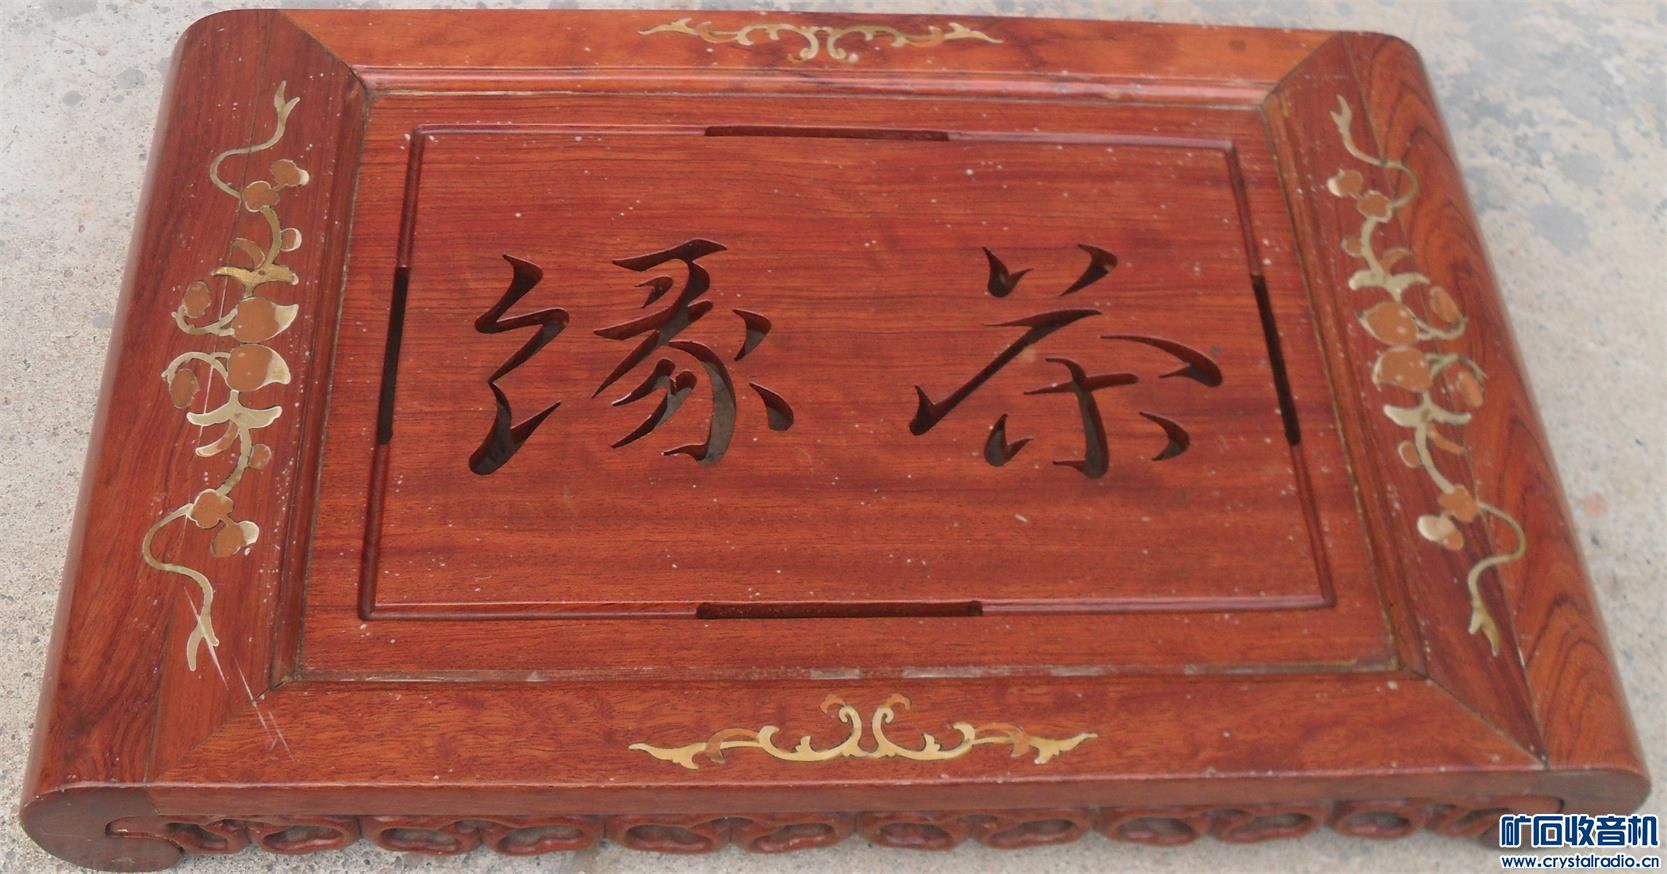 缘茶
矿石收音机
www.crystalradio.cn